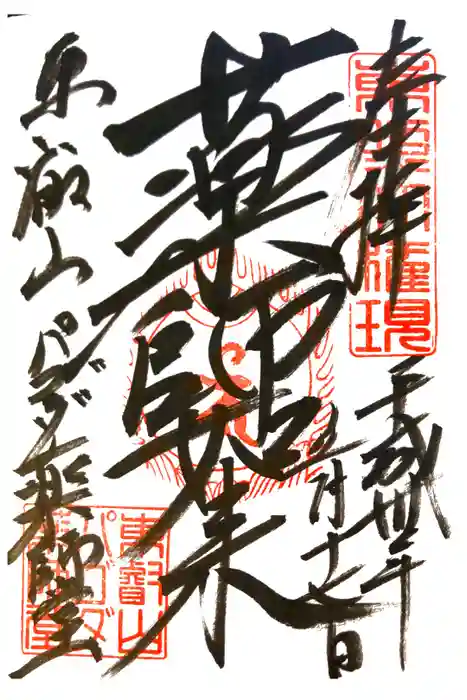 奉拝
東照大権現
平成 年
五月十七日
薬師如来
東叡山パゴダ薬師堂
東叡山
パゴダ
薬師堂